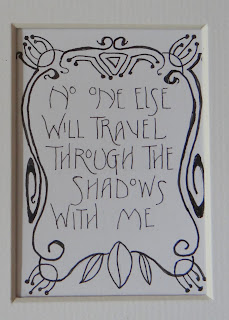 NO ONE ELSE
WILL TRAVEL
THROUGH THE
SHADOWS
WITH ME